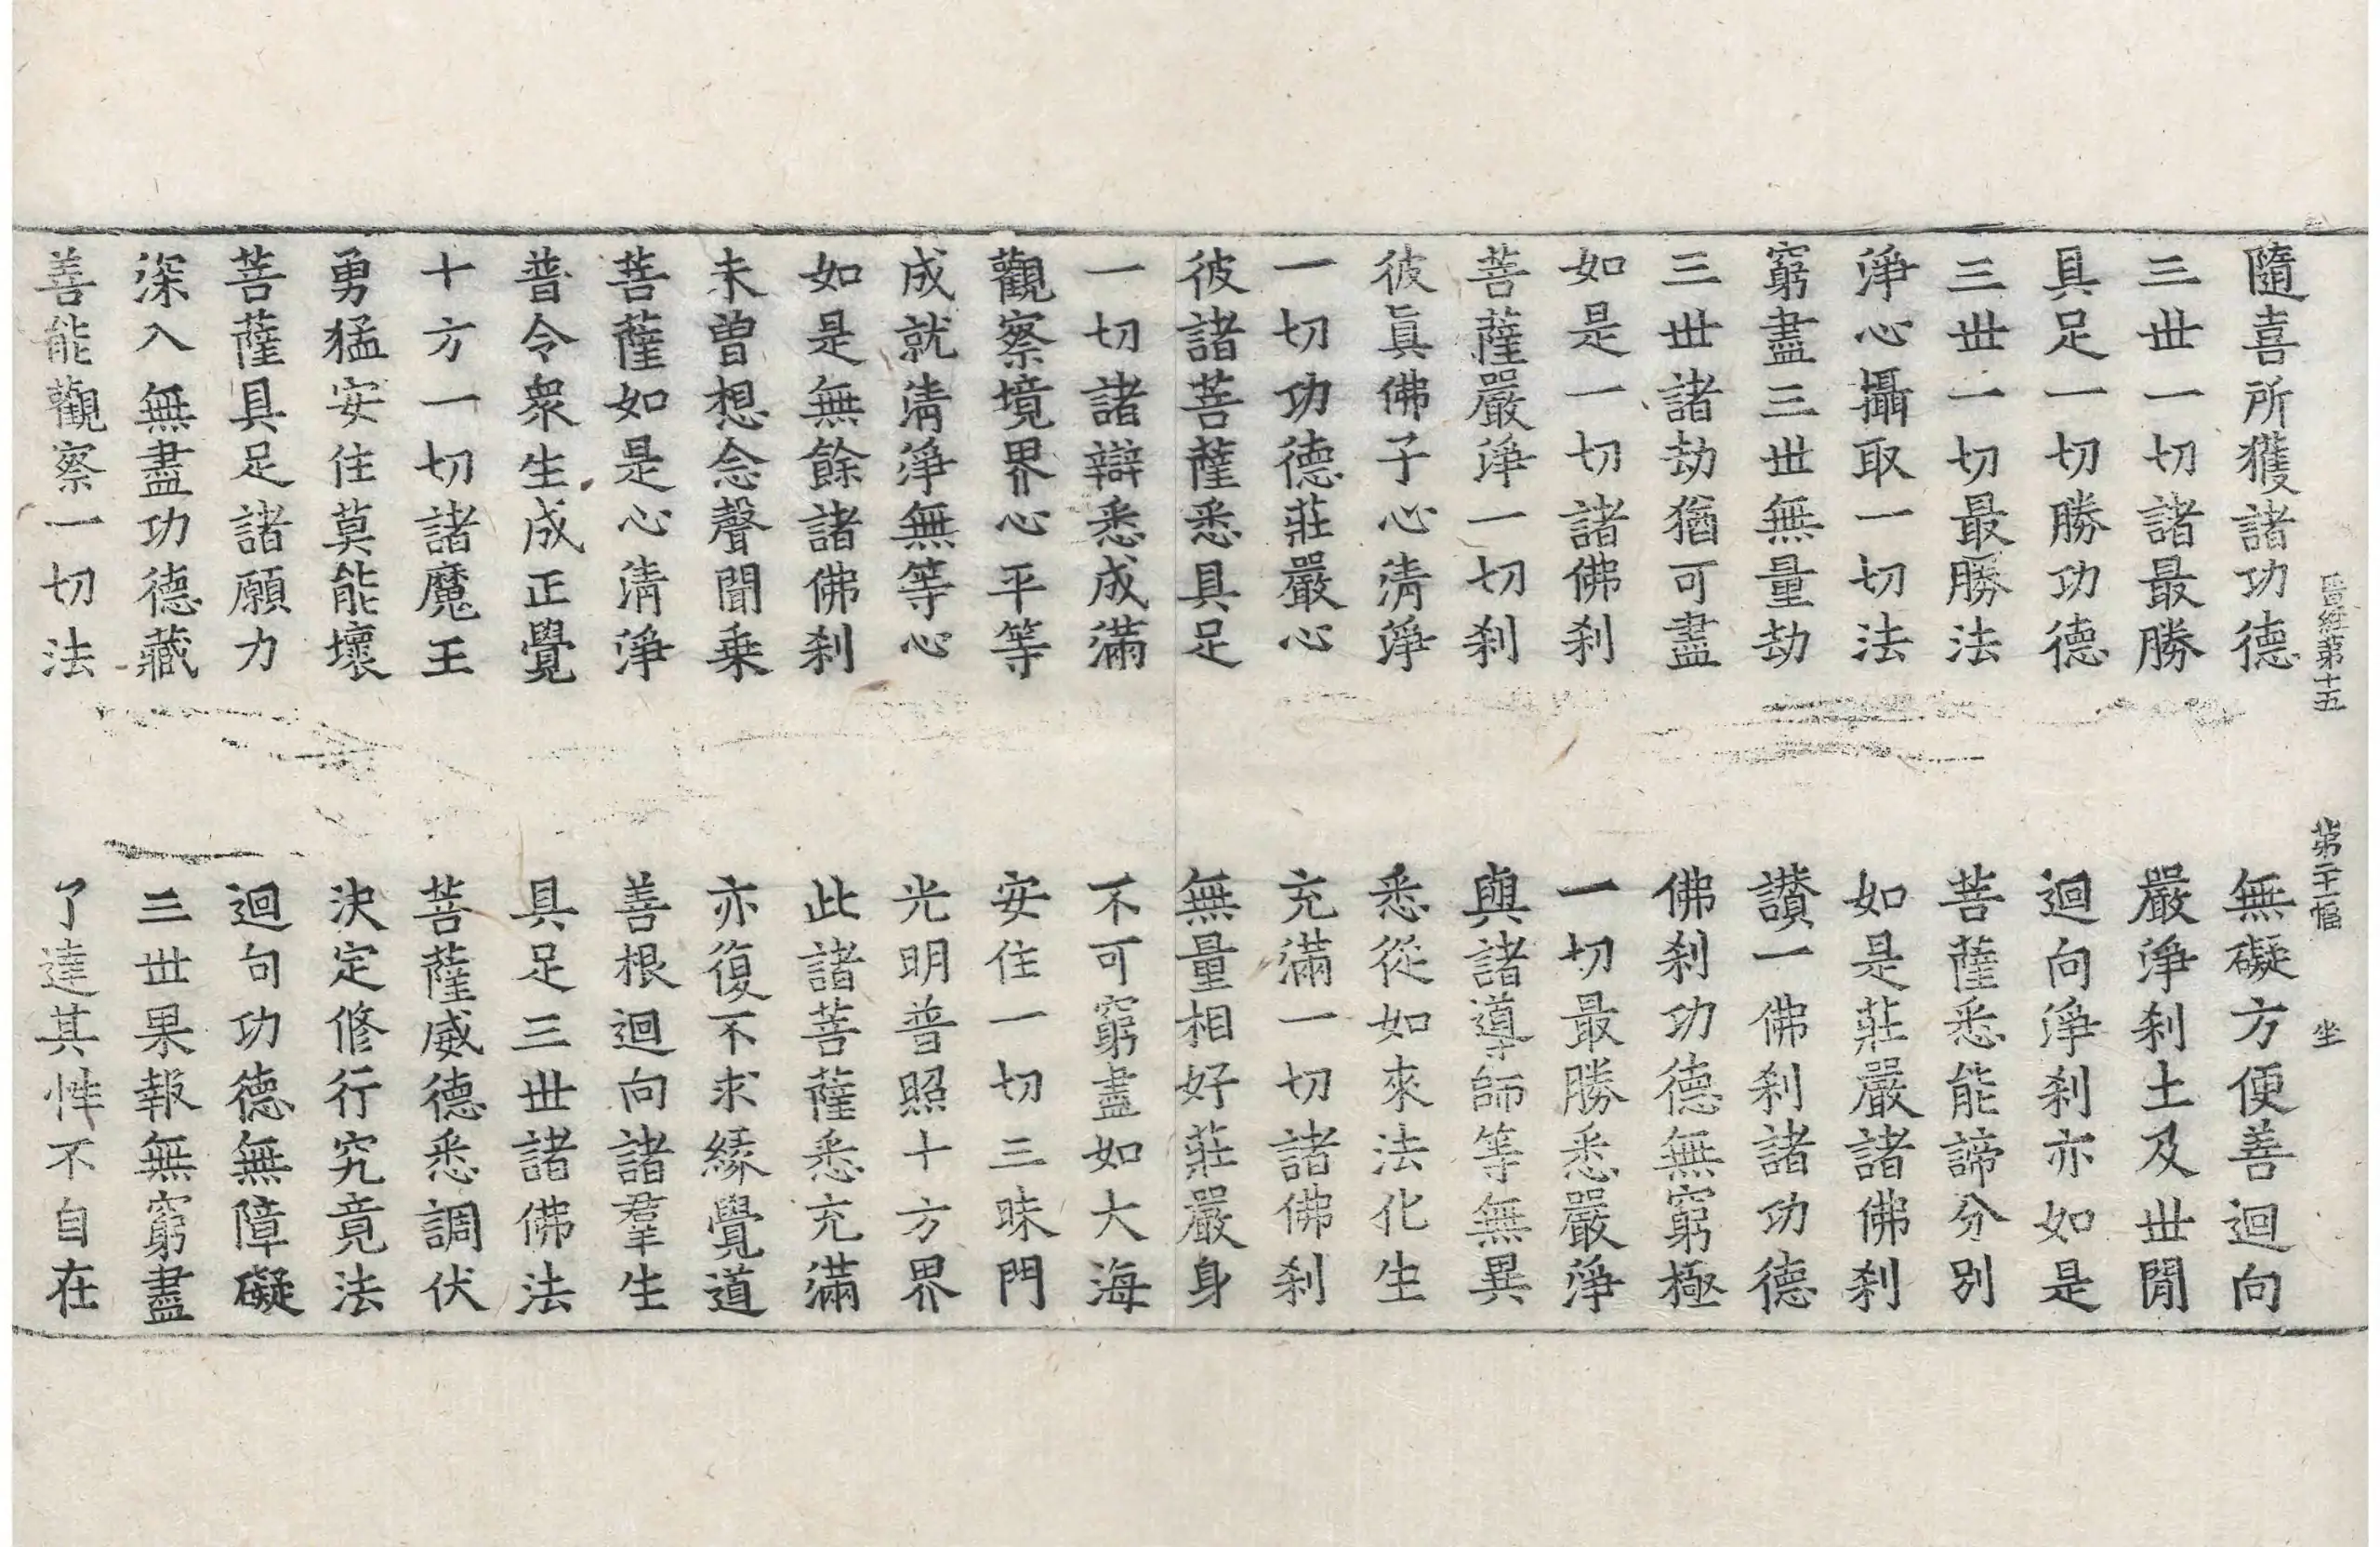 晉經第十五　第二十二幅　坐
隨喜所獲諸功德　無礙方便善迴向
三世一切諸最勝　嚴淨刹土及世閒
具足一切勝功德　迴向淨刹亦如是
三世一切最勝法　菩薩悉能諦分別
淨心攝取一切法　如是莊嚴諸佛刹
窮盡三世無量劫　讃一佛刹諸功德
三世諸劫猶可盡　佛刹功德無窮極
如是一切諸佛刹　一切最勝悉嚴淨
菩薩嚴淨一切刹　與諸導師等無異
彼眞佛子心清淨　悉從如來法化生
一切功德莊嚴心　充滿一切諸佛刹
彼諸菩薩悉具足　無量相好莊嚴身
一切諸辯悉成滿　不可窮盡如大海
觀察境界心平等　安住一切三昧門
成就清淨無等心　光明普照十方界
如是無餘諸佛刹　此諸菩薩悉充滿
未曾想念聲聞乗　亦復不求緣覺道
菩薩如是心清淨　善根迴向諸羣生
普令衆生成正覺　具足三世諸佛法
十方一切諸魔王　菩薩威德悉調伏
勇猛安住莫能壞　決定修行究竟法
菩薩具足諸願力　迴向功德無障礙
深入無盡功德藏　三世果報無窮盡
善能觀察一切法　了達其性不自在